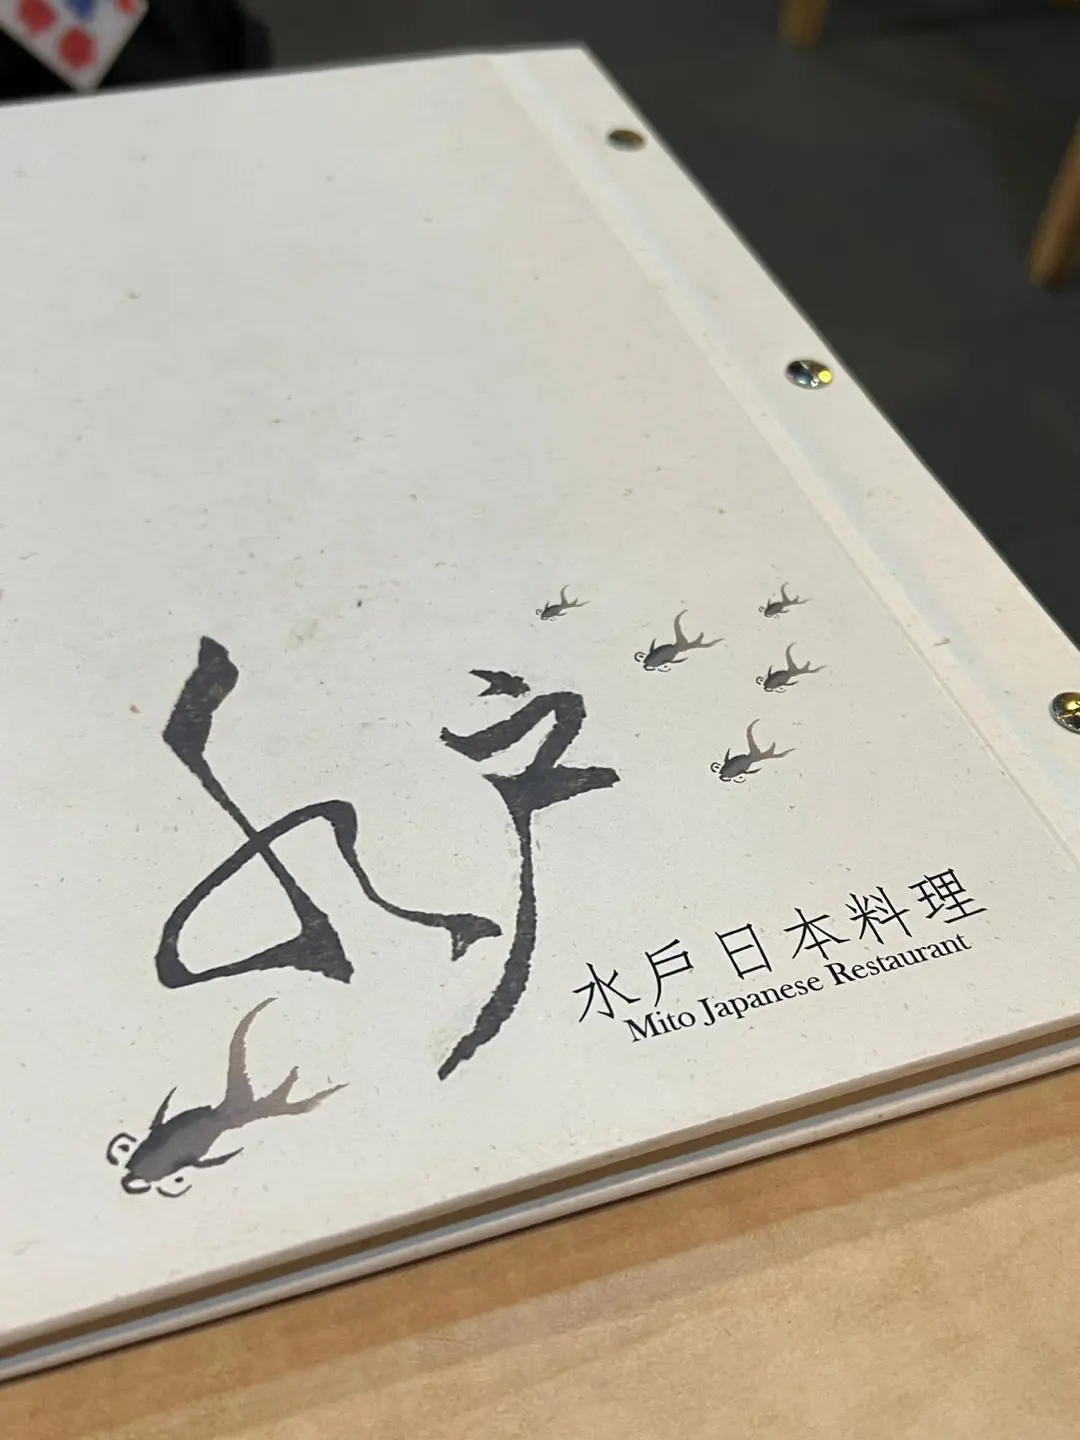 水戶
水戶日本料理
Mito Japanese Restaurant